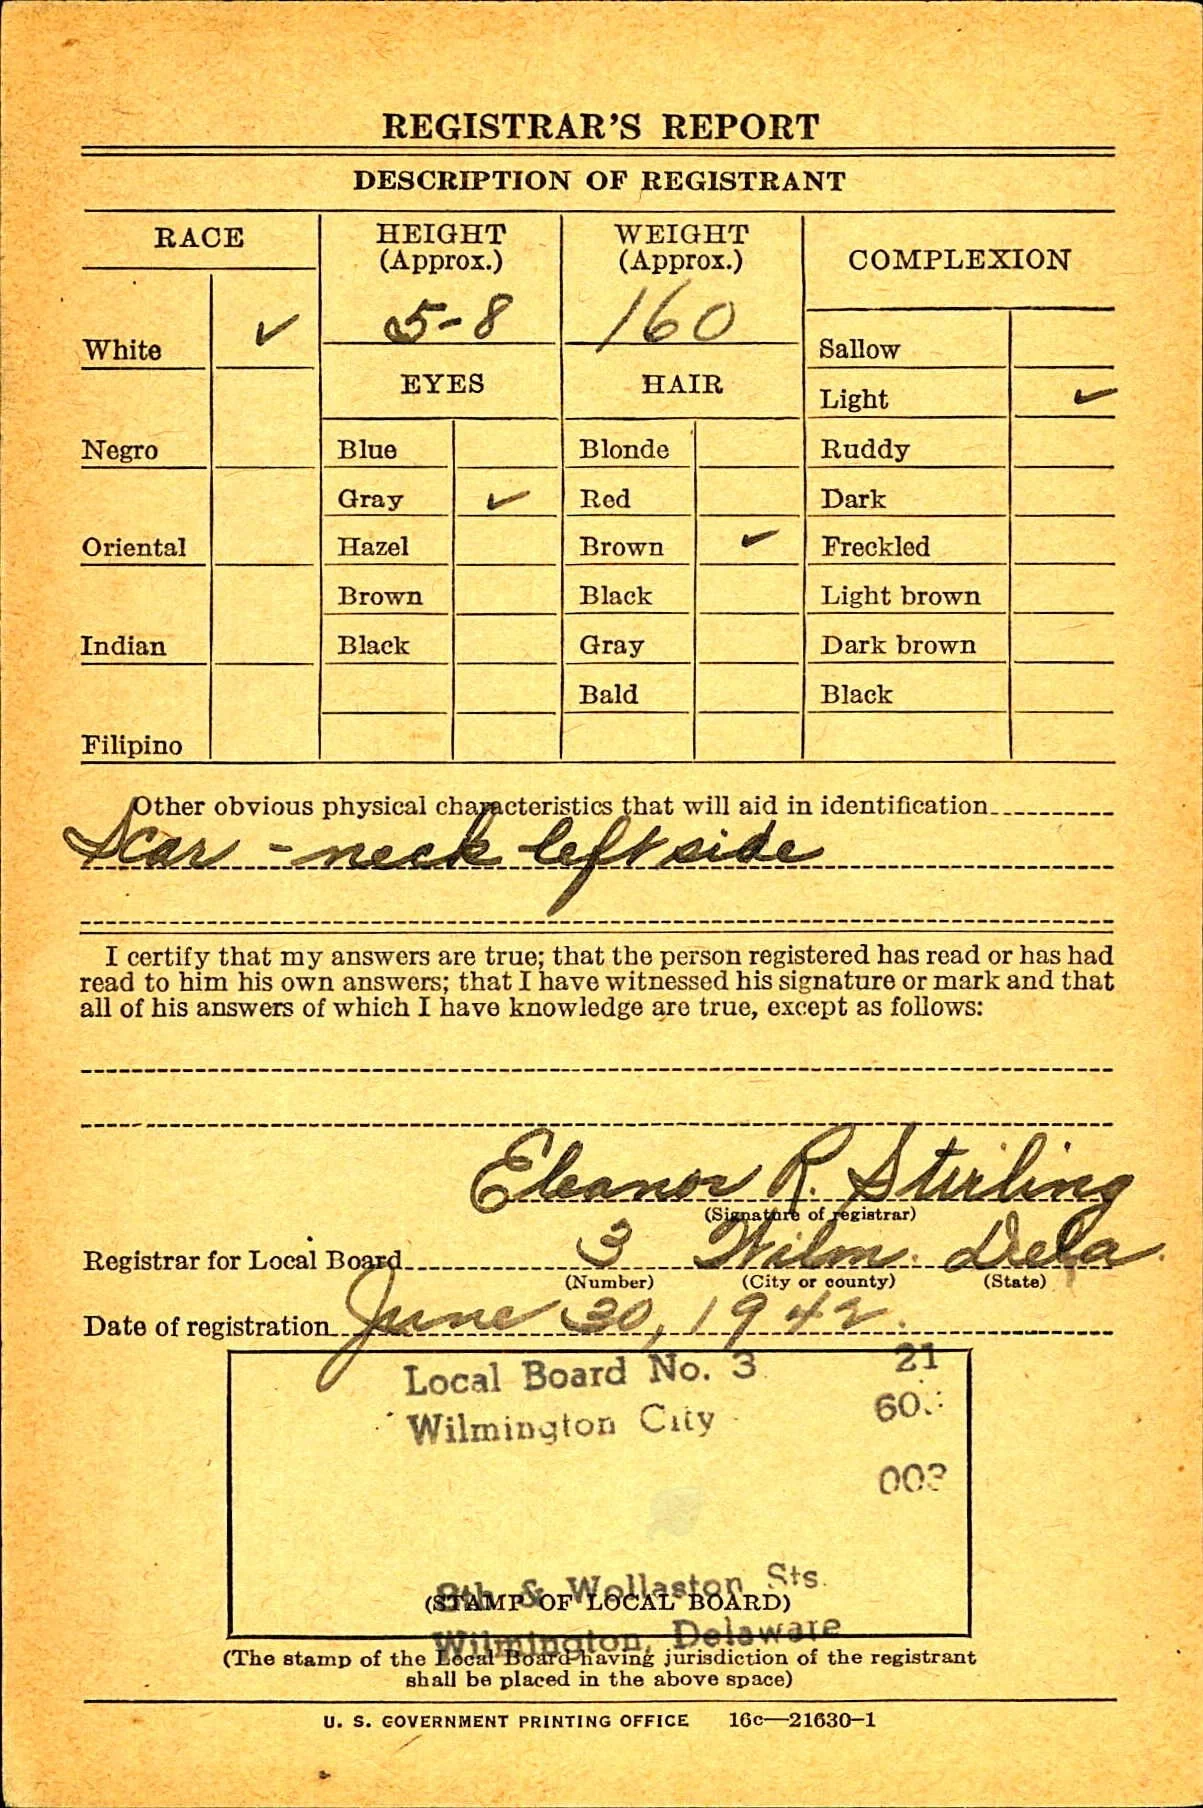 REGISTRAR'S REPORT
DESCRIPTION OF REGISTRANT
RACE
HEIGHT
(Approx.)
WEIGHT
(Approx.)
COMPLEXION
5-8
160
White ✓
Sallow
EYES
HAIR
Light ✓
Negro
Blue
Blonde
Ruddy
Gray ✓
Red
Dark
Oriental
Hazel
Brown ✓
Freckled
Brown
Black
Light brown
Indian
Black
Gray
Dark brown
Bald
Black
Filipino
Other obvious physical characteristics that will aid in identification
Scar - neck left side
I certify that my answers are true; that the person registered has read or has had
read to him his own answers; that I have witnessed his signature or mark and that
all of his answers of which I have knowledge are true, except as follows:
Eleanor R. Stirling
(Signature of registrar)
Registrar for Local Board 3 Wilm. Dela.
(Number) (City or county) (State)
Date of registration June 30, 1942.
Local Board No. 3 21
Wilmington City 60
003
8th & Wollaston Sts.
(STAMP OF LOCAL BOARD)
Wilmington, Delaware
(The stamp of the Local Board having jurisdiction of the registrant
shall be placed in the above space)
U. S. GOVERNMENT PRINTING OFFICE 16c—21630-1